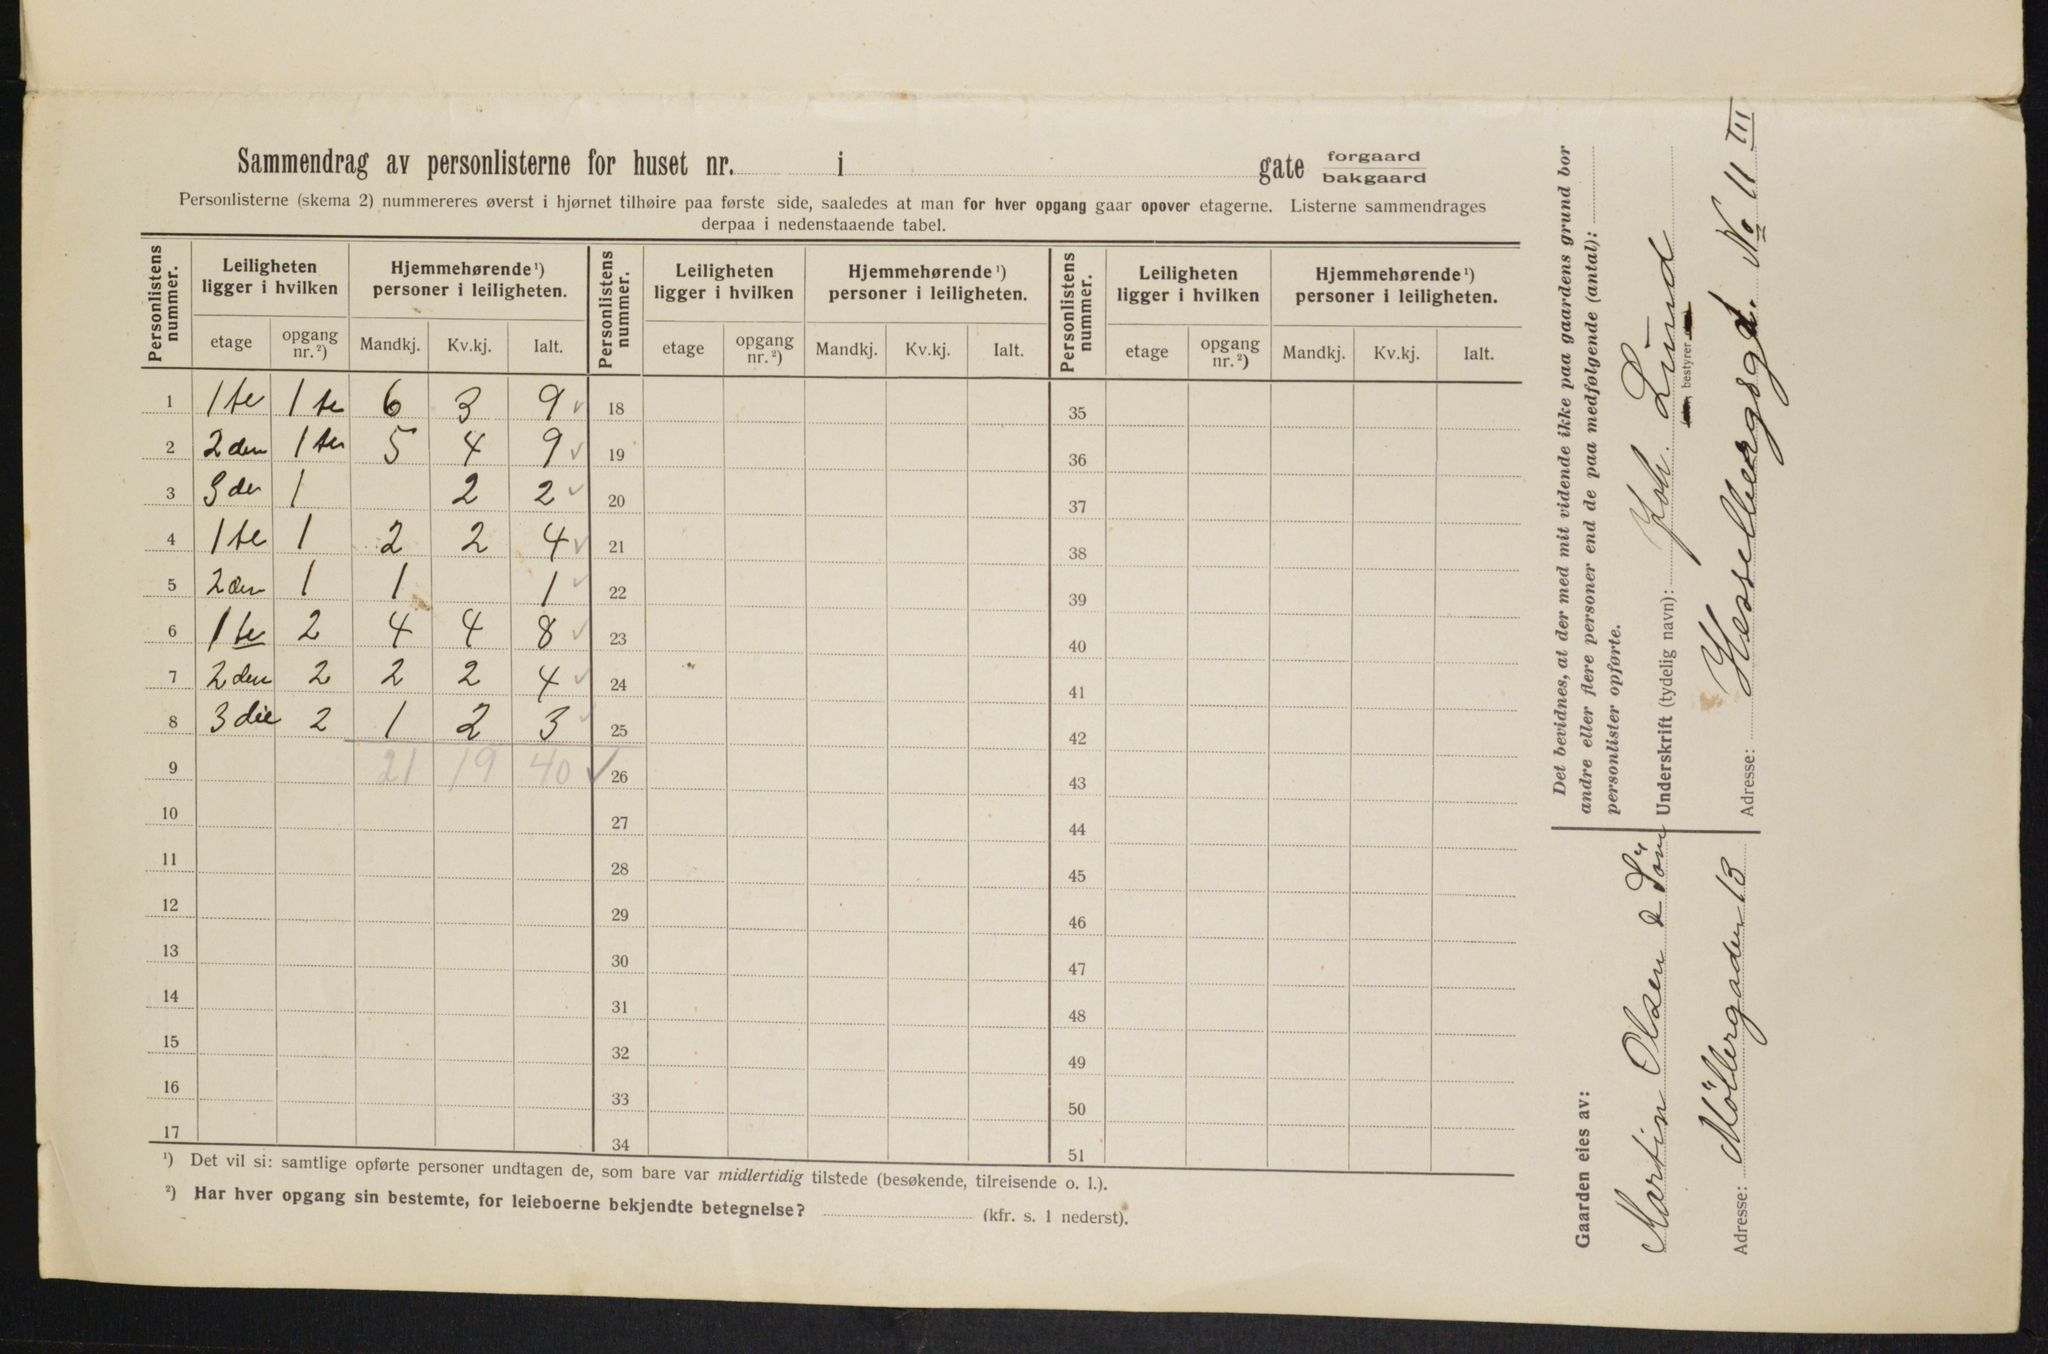 Sammendrag av personlisterne for huset nr. i gate forgaard bakgaard
Personlisterne (skema 2) nummereres øverst i hjørnet tilhøire paa første side, saaledes at man for hver opgang gaar opover etagerne. Listerne sammendrages
derpaa i nedenstaaende tabel.
Personlistens nummer. Leiligheten ligger i hvilken Hjemmehørende ¹) personer i leiligheten. Personlistens nummer. Leiligheten ligger i hvilken Hjemmehørende ¹) personer i leiligheten. Personlistens nummer. Leiligheten ligger i hvilken Hjemmehørende ¹) personer i leiligheten.
etage opgang nr. ²) Mandkj. Kv.kj. Ialt. etage opgang nr. ²) Mandkj. Kv.kj. Ialt. etage opgang nr. ²) Mandkj. Kv.kj. Ialt.
1 1 te 1 te 6 3 9 ✓ 18 35
2 2 den 1 te 5 4 9 ✓ 19 36
3 3 de 1 2 2 ✓ 20 37
4 1 te 1 2 2 4 ✓ 21 38
5 2 den 1 1 1 ✓ 22 39
6 1 te 2 4 4 8 ✓ 23 40
7 2 den 2 2 2 4 ✓ 24 41
8 3 die 2 1 2 3 ✓ 25 42
9 21 19 40 ✓ 26 43
10 27 44
11 28 45
12 29 46
13 30 47
14 31 48
15 32 49
16 33 50
17 34 51
¹) Det vil si: samtlige opførte personer undtagen de, som bare var midlertidig tilstede (besøkende, tilreisende o. l.).
²) Har hver opgang sin bestemte, for leieboerne bekjendte betegnelse? (kfr. s. 1 nederst).
Det bevidnes, at der med mit vidende ikke paa gaardens grund bor
andre eller flere personer end de paa medfølgende (antal):
personlister opførte.
Underskrift (tydelig navn): Joh. Lund
bestyrer
Adresse: Hesselbergsgt. No 11 III
Gaarden eies av:
Martin Olsen & Sön
Adresse: Möllergaden 13